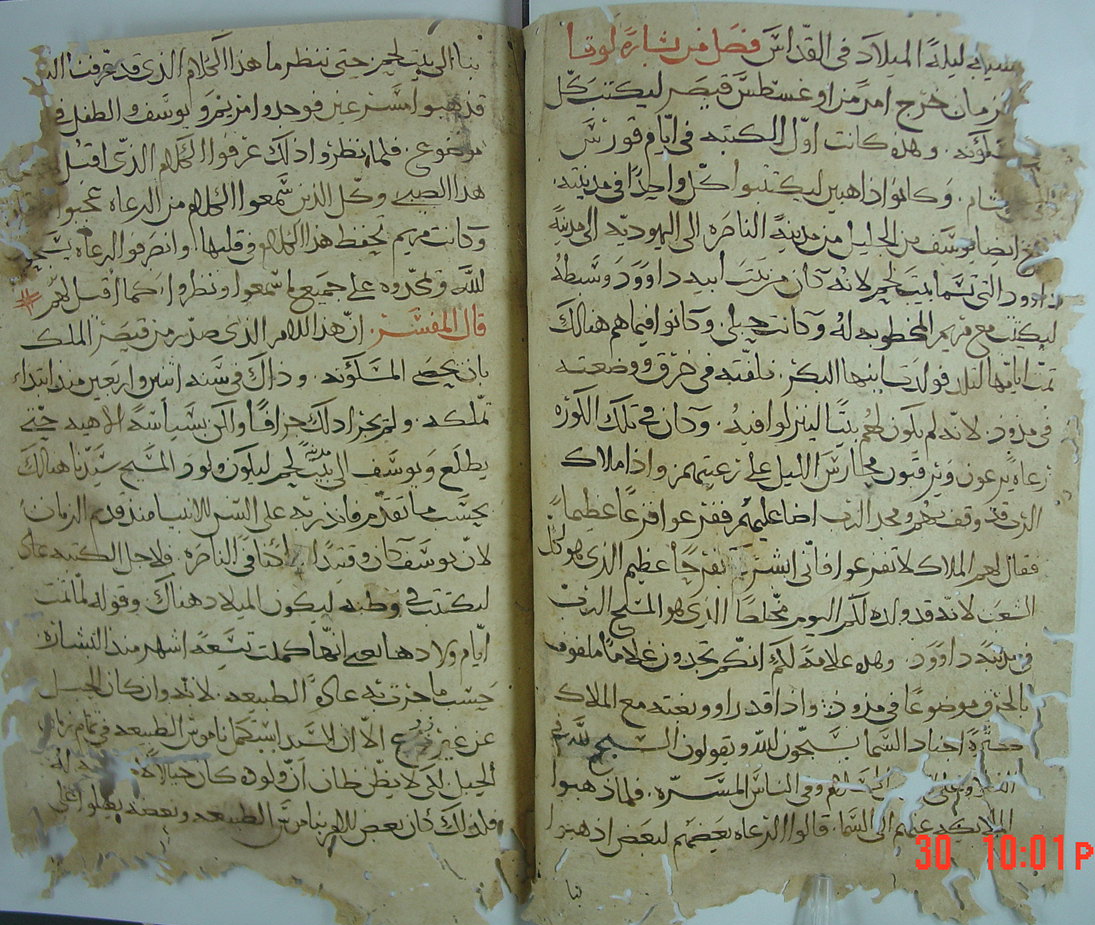 ليلة الميلاد في القداس فصل من بشارة لوقا
زمان خرج امر من اوغسطس قيصر ليكتتب كل
وهذه كانت اول الكتبه في ايام قورس
وكانوا ذاهبين ليكتتبوا كل واحدا في مدينته
ايضا يوسف من الجليل من مدينة الناصره الى اليهوديه الى مدينة
داوود التي تسما بيت لحم لانه كان من بيت ابيه داوود وسبطه
ليكتتب مع مريم المخطوبه له وكانت حبلى وكانوا فيما هم هنالك
تمت ايامها لتلد فولدت ابنها البكر فلفته في خرق ووضعته
في مدود لانه لم يكون لهم بيتا لينزلوا فيه وكان في تلك الكوره
رعاه يرعون ويرقبون محارس الليل على رعيتهم واذا ملاك
الرب قد وقف بهم ومجد الرب اضا عليهم ففزعوا فزعا عظيما
فقال لهم الملاك لا تفزعوا فاني ابشركم بفرحا عظيم الذي هو لكل
الشعب لانه قد ولد لكم اليوم مخلصا الذي هو المسيح الرب
في مدينة داوود وهذه علامة لكم انكم تجدون غلاما ملفوف
بالخرق موضوعا في مدود واذا قد راوو بغته مع الملاك
اجناد السما يسبحون لله ويقولون السبح لله في
وعلى السلام وفي الناس المسره فلما ذهبوا
الملايكه عنهم الى السما قالوا الرعاه بعضهم لبعض اذهبوا
بنا
بنا الى بيت لحم حتى ننظر ما هذا الكلام الذي قد عرفنا
فذهبوا مسرعين فوجدوا مريم ويوسف والطفل في
موضوع فلما نظروا ذلك عرفوا الكلام الذي اقتبل
هذا الصبي وكل الذين سمعوا الكلام من الرعاه عجبوا
وكانت مريم تحفظ هذا الكلام في قلبها وانصرفوا الرعاه
لله على جميع ما سمعوا ونظروا كما قيل لهم
قال المفسر ان هذا الامر الذي صدر من قيصر الملك
بان يحصي المسكونه وذاك في سنه اثنين واربعين منذ ابتداء
تملكه ولم يجز ذلك جزافا ولكن بسياسة الاهيه حتى
يطلع يوسف الى بيت لحم ليكون مولود المسيح سيدنا هنالك
بحسب ما تقدم على السن الانبيا منذ قديم الزمان
لان يوسف كان في الناصره فلاجل الكتبه
ليكتتب في وطنه ليكون الميلاد هناك وقوله لما تمت
ايام ولادها يعني انها كملت تسعة اشهر منذ البشاره
حسب ما جرت به عادة الطبيعه لانه وان كان الحبل
عن غير زرع الا ان السيد استكمل ناموس الطبيعه في تمام زمان
الحبل لكي لا يظن ظان ان ولود كان خيالا
فلذلك كان بعض الامر بناموس الطبيعه وبعضه
30 10:01 P